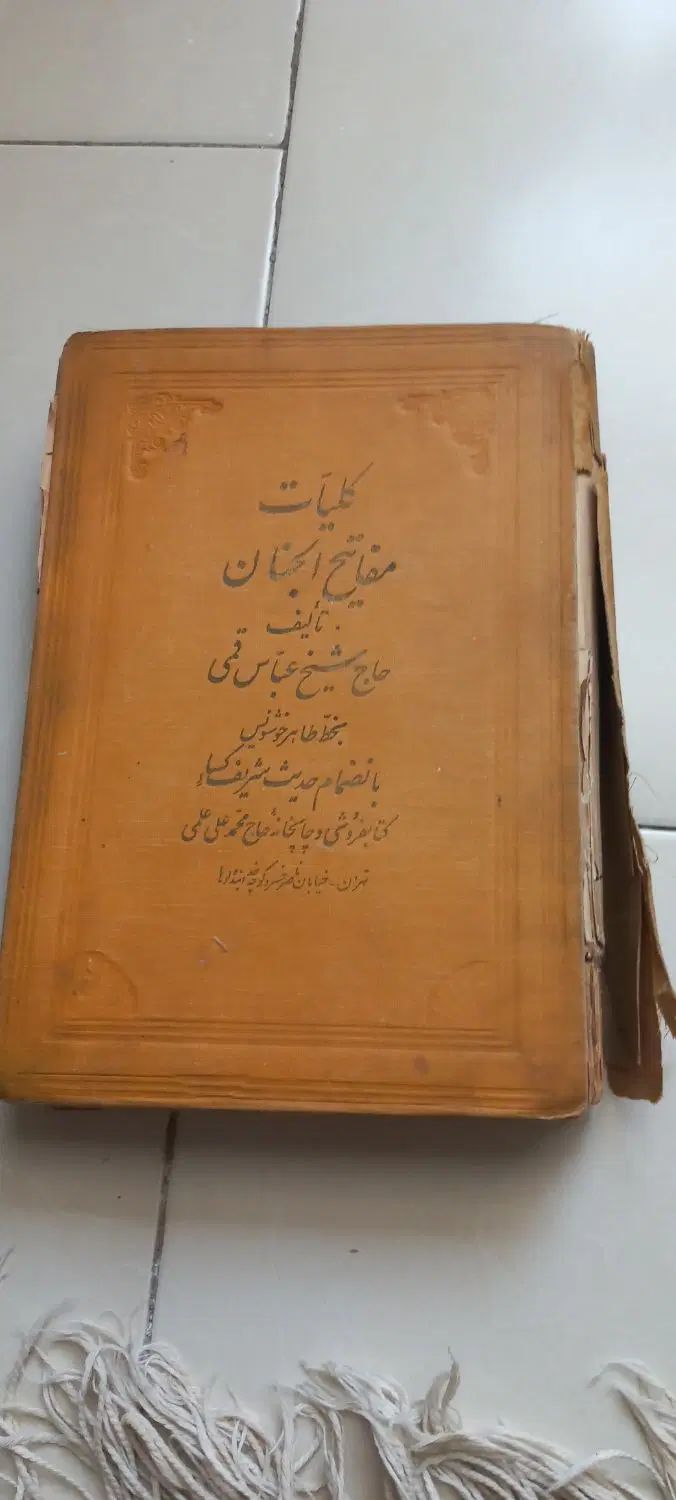 کلیات
مفاتیح الجنان
تألیف
حاج شیخ عباس قمی
بخط طاهر خوشنویس
بانضمام حدیث شریف کساء
کتابفروشی و چاپخانهٔ حاج محمد علی علمی
تهران - خیابان ناصرخسرو کوچه